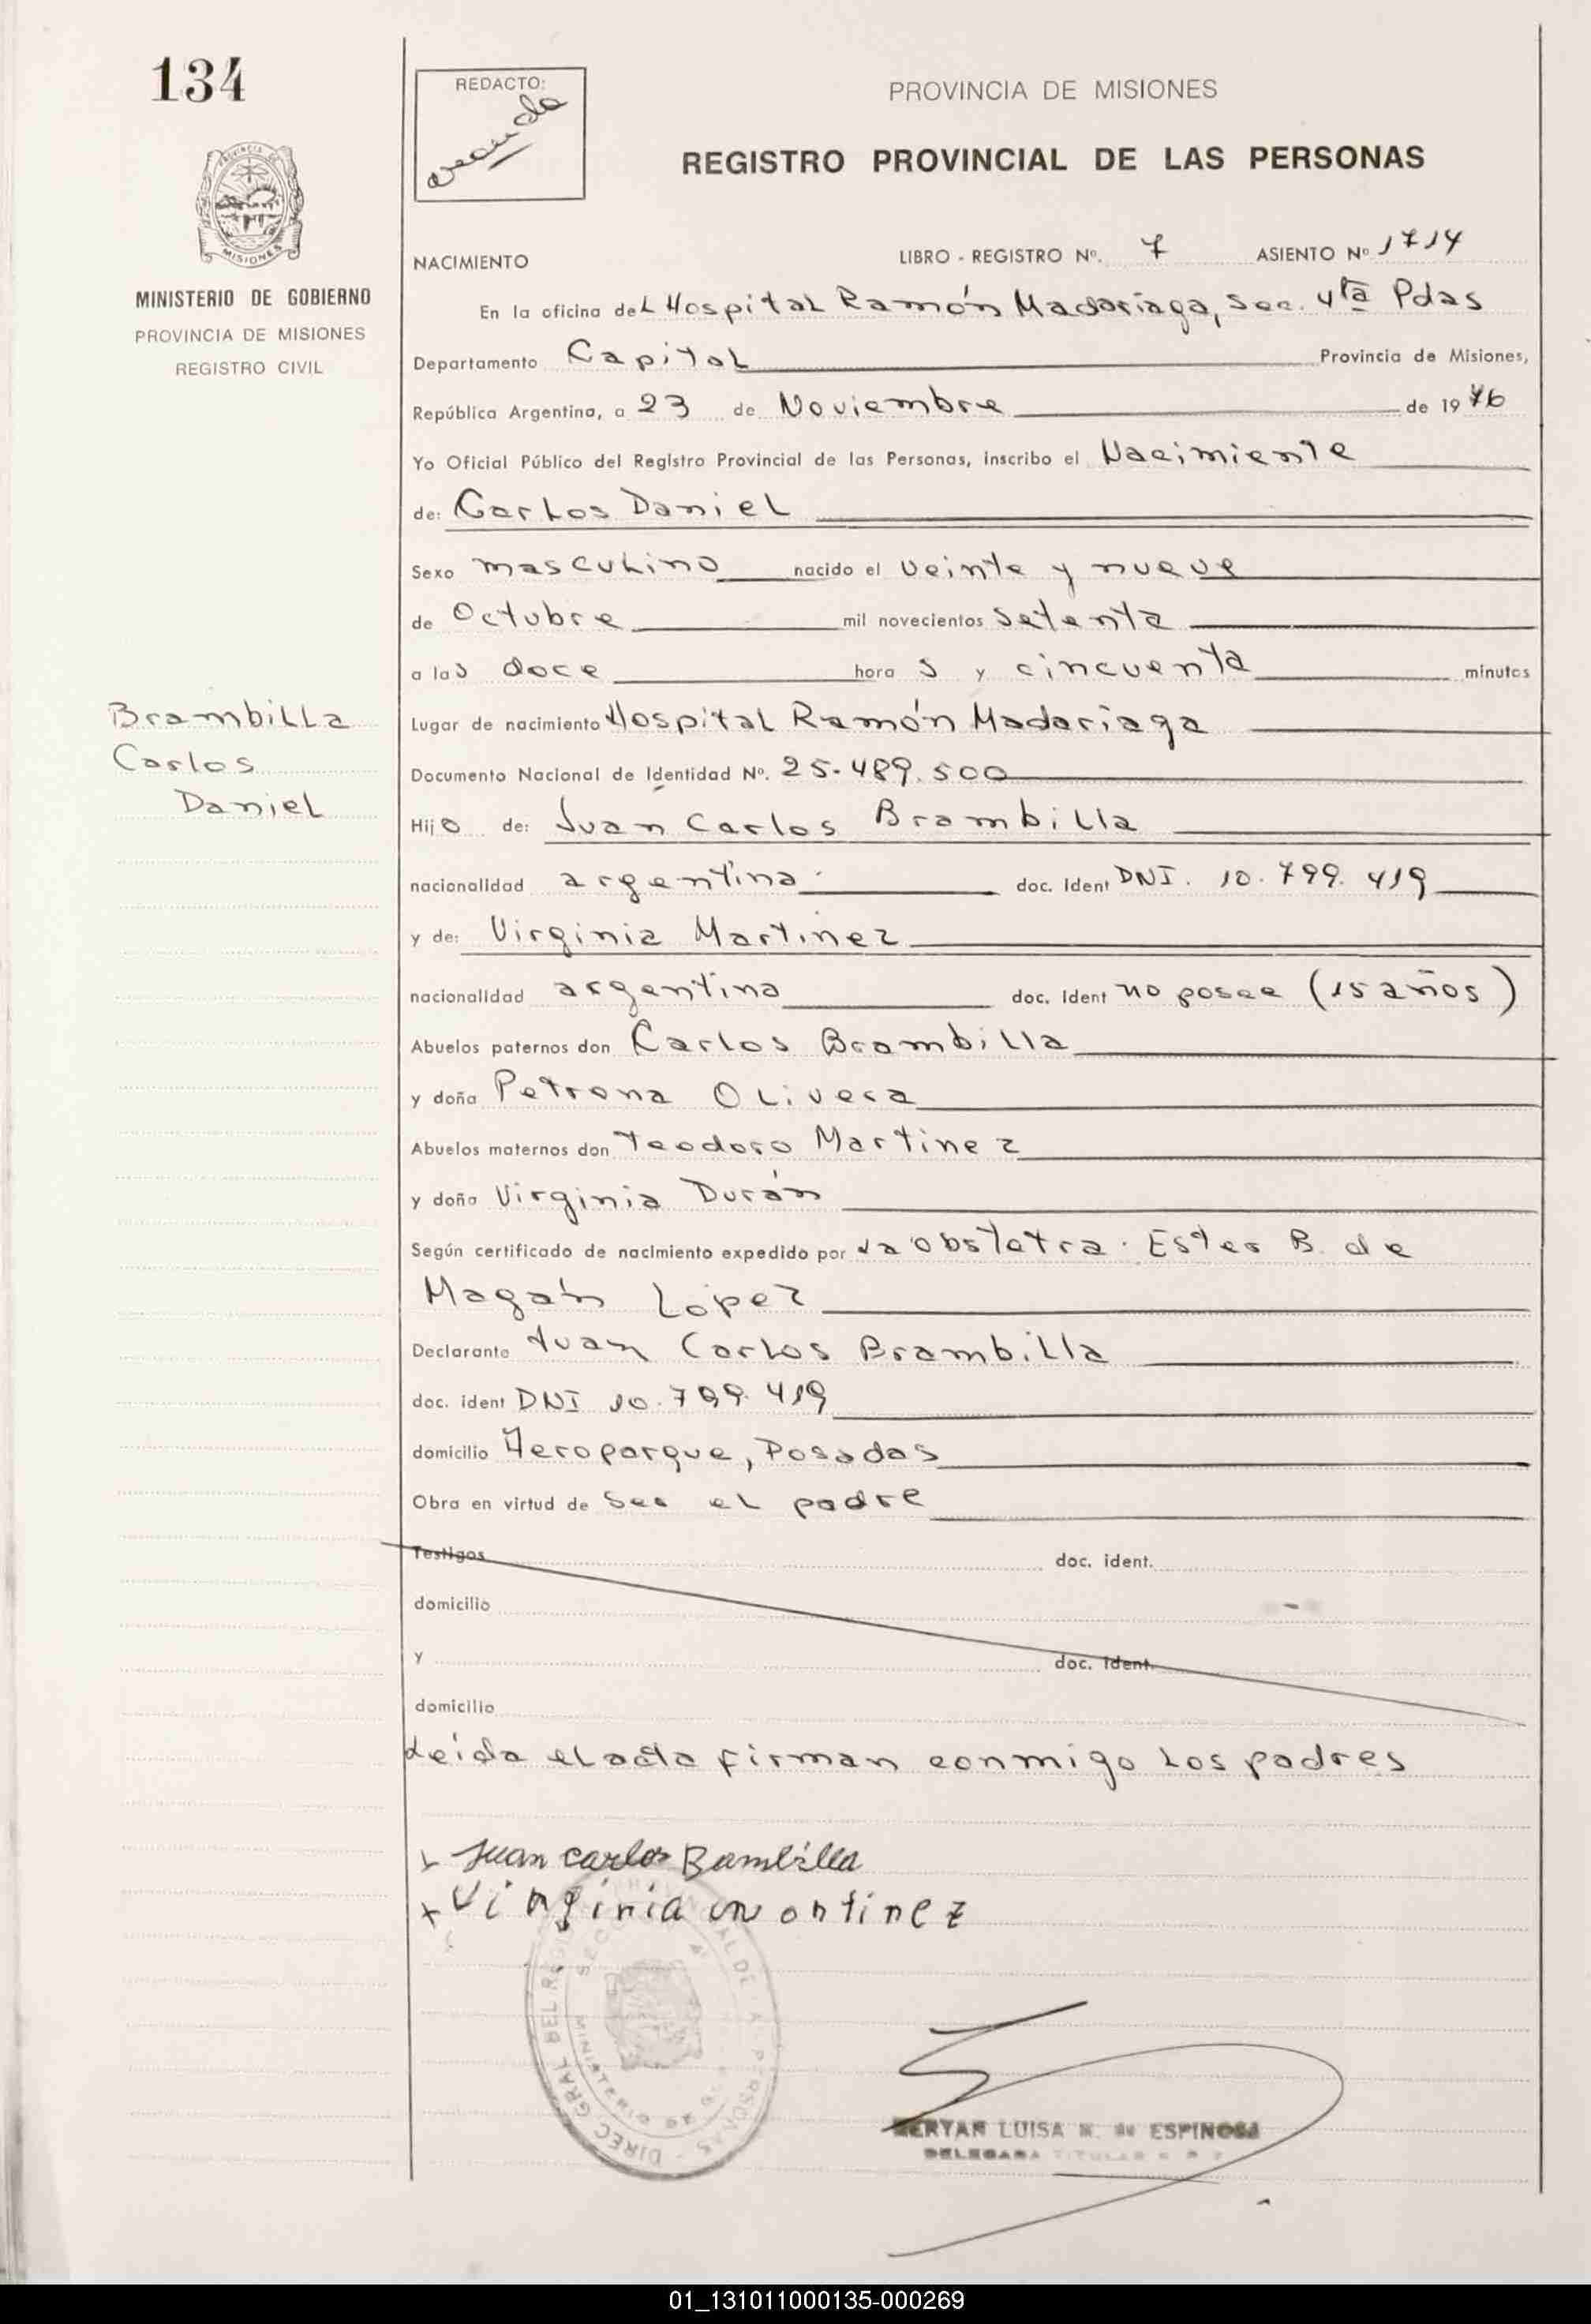 134
REDACTO:
PROVINCIA DE MISIONES
REGISTRO PROVINCIAL DE LAS PERSONAS
MISIONES
MINISTERIO DE GOBIERNO
PROVINCIA DE MISIONES
REGISTRO CIVIL
NACIMIENTO LIBRO - REGISTRO Nº. 7 ASIENTO Nº 1714
En la oficina deL Hospital Ramón Madariaga, Sec. 4ta Pdas
Departamento Capital Provincia de Misiones,
República Argentina, a 23 de Noviembre de 1976
Yo Oficial Público del Registro Provincial de las Personas, inscribo el Nacimiento
de: Carlos Daniel
Sexo masculino nacido el veinte y nueve
de Octubre mil novecientos setenta
a las doce horas y cincuenta minutos
Brambilla
Carlos
Daniel
Lugar de nacimiento Hospital Ramón Madariaga
Documento Nacional de Identidad Nº. 25.489.500
Hijo de: Juan Carlos Brambilla
nacionalidad argentina doc. Ident DNI. 10.799.419
y de: Virginia Martinez
nacionalidad argentina doc. Ident no posee (15 años)
Abuelos paternos don Carlos Brambilla
y doña Petrona Olivera
Abuelos maternos don Teodoro Martinez
y doña Virginia Durán
Según certificado de nacimiento expedido por la obstetra. Ester B. de
Magan Lopez
Declarante Juan Carlos Brambilla
doc. ident DNI 10.799.419
domicilio Aeroparque, Posadas
Obra en virtud de ser el padre
Testigos doc. ident.
domicilio
y doc. ident.
domicilio
Leida el acta firman conmigo los padres
x Juan carlos Bambilla
x Virginia Martinez
DIREC. GRAL DEL REGISTRO PROVINCIAL DE LAS PERSONAS
MINISTERIO DE
LUISA M. de ESPINOSA
DELEGADA TITULAR
01_131011000135-000269